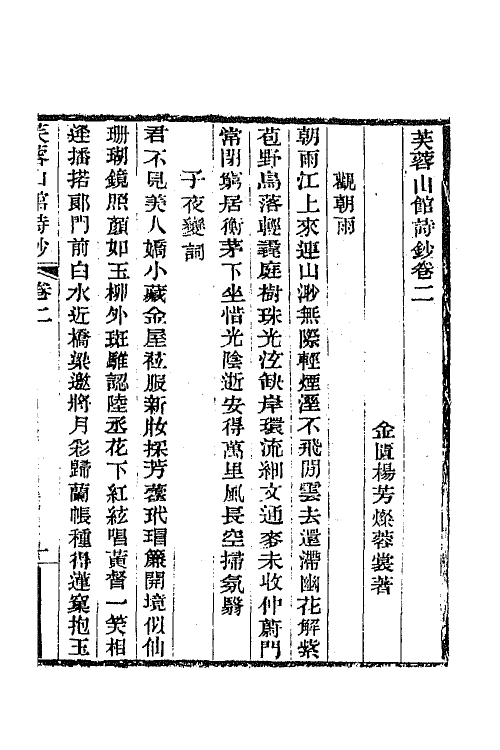 芙蓉山館詩鈔卷二
金匱楊芳燦蓉裳著
觀朝雨
朝雨江上來連山渺無際輕煙溼不飛閒雲去還滯幽花解紫
苞野鳥落輕毳庭樹珠光泫缺岸環流細文通麥未收仲蔚門
常閉窮居衡茅下坐惜光陰逝安得萬里風長空掃氛翳
子夜變詞
君不見美人嬌小藏金屋袨服新妝採芳蕤玳瑁簾開境似仙
珊瑚鏡照顏如玉柳外斑騅認陸丞花下紅絃唱黃督一笑相
逢播搭郎門前白水近橋梁邀將月彩歸蘭帳種得蓮窠抱玉
芙蓉山館詩鈔 卷二 一